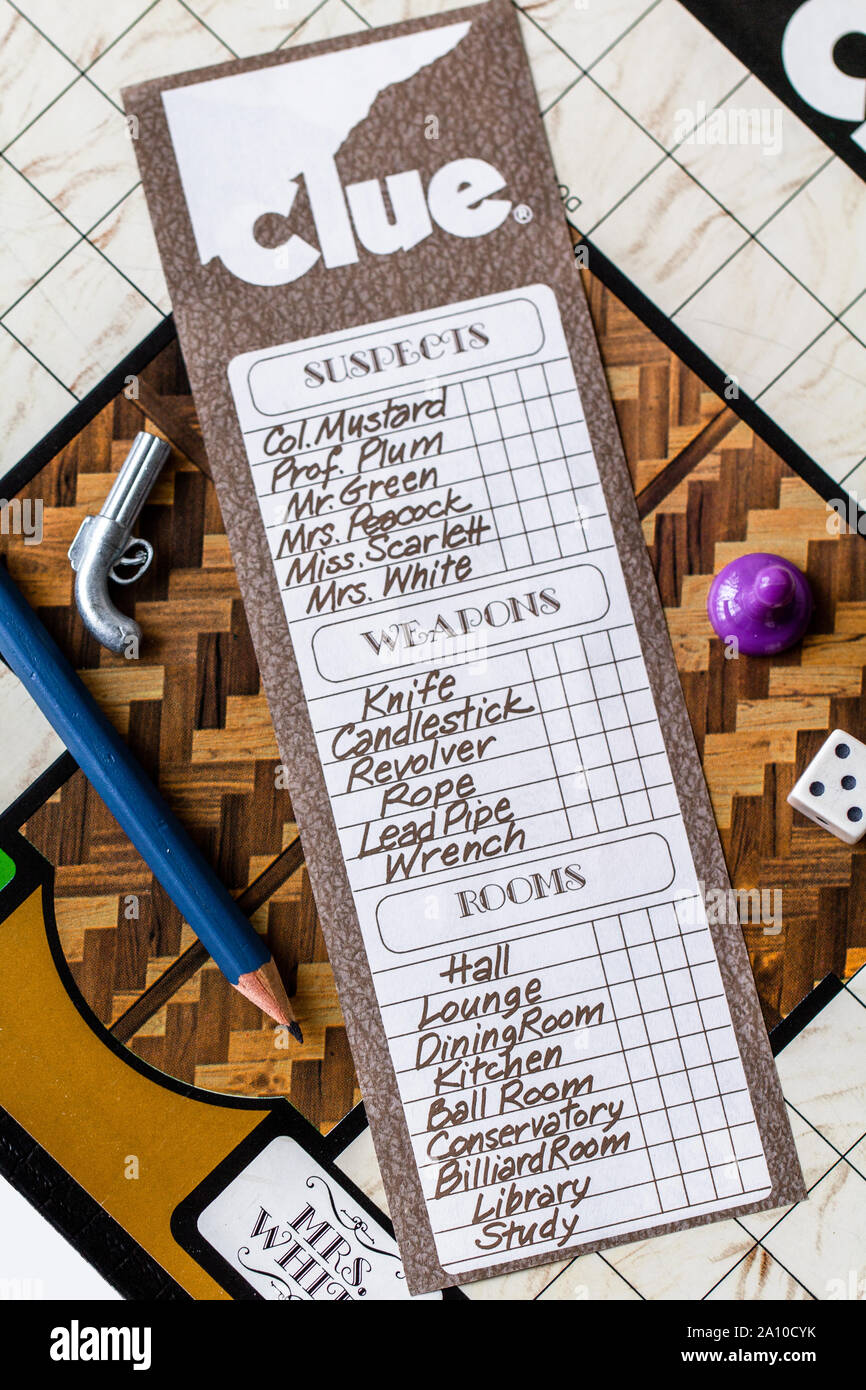 clue®
SUSPECTS
Col. Mustard
Prof. Plum
Mr. Green
Mrs. Peacock
Miss. Scarlett
Mrs. White
WEAPONS
Knife
Candlestick
Revolver
Rope
Lead Pipe
Wrench
ROOMS
Hall
Lounge
Dining Room
Kitchen
Ball Room
Conservatory
Billiard Room
Library
Study
MRS.
alamy
Image ID: 2A10CYK
www.alamy.com